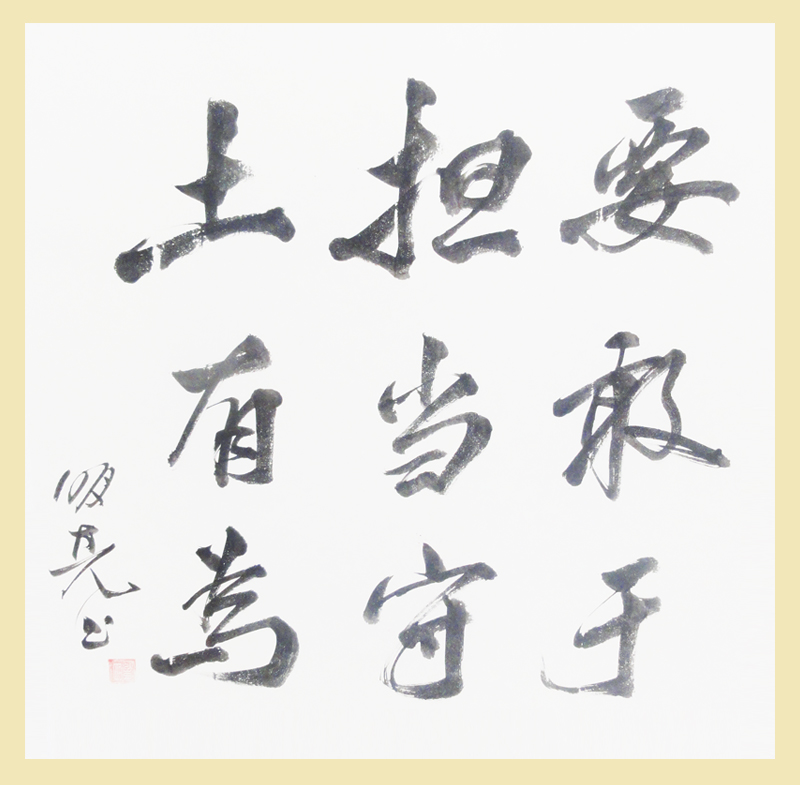 要敢于
担当守
土有为
明亮书